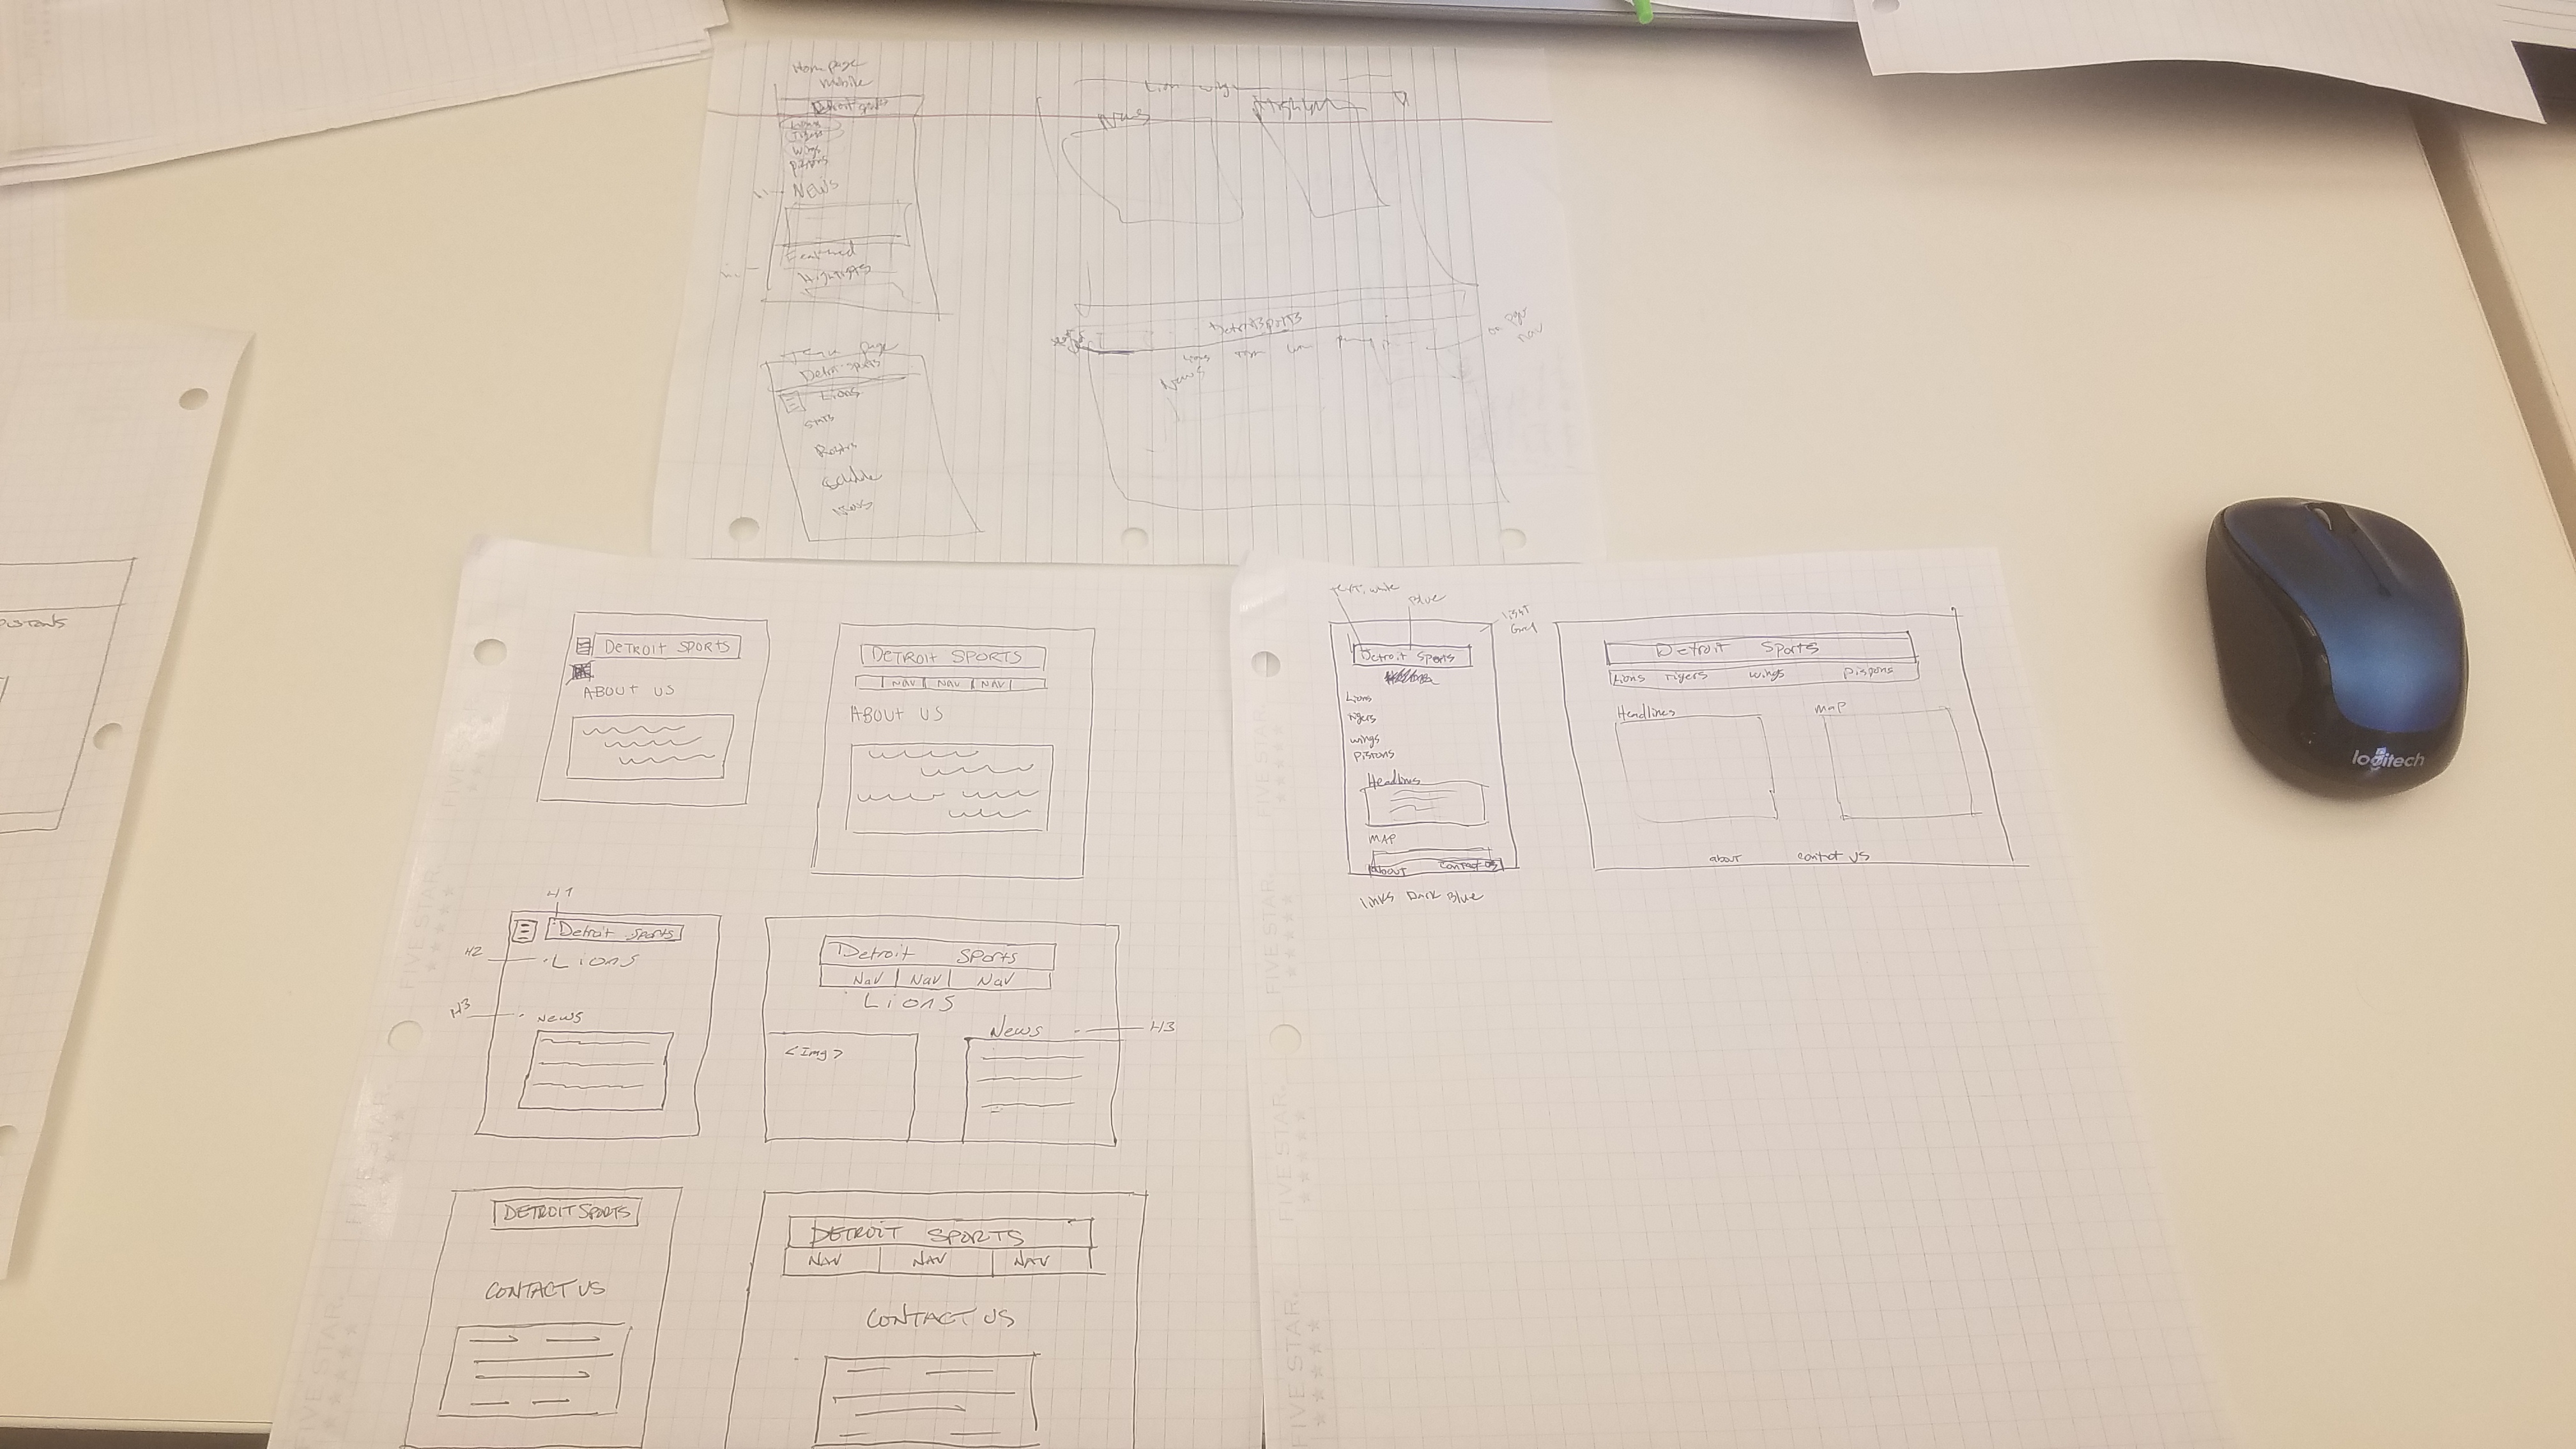 Home page
mobile
Detroit sports
Lions
Tigers
Wings
pistons
NEWS
Featured
Highlights
Lion wings
News
Highlight
Team page
Detroit sports
Lions
stats
Roster
News
Detroit Sports
on page
nav
News
DETROIT SPORTS
ABOUT US
DETROIT SPORTS
NAV NAV NAV
ABOUT US
H1
Detroit Sports
H2
Lions
H3
News
Detroit Sports
Nav Nav Nav
Lions
<Img>
News
H3
DETROIT SPORTS
CONTACT US
DETROIT SPORTS
NAV NAV NAV
CONTACT US
text: white
Blue
light
Detroit Sports
Lions
Tigers
wings
Pistons
Headlines
MAP
About Contact US
links Dark Blue
Detroit Sports
Lions Tigers wings Pispons
Headlines
MAP
about contact US
FIVE STAR.
FIVE STAR.
FIVE STAR.
FIVE STAR.
logitech